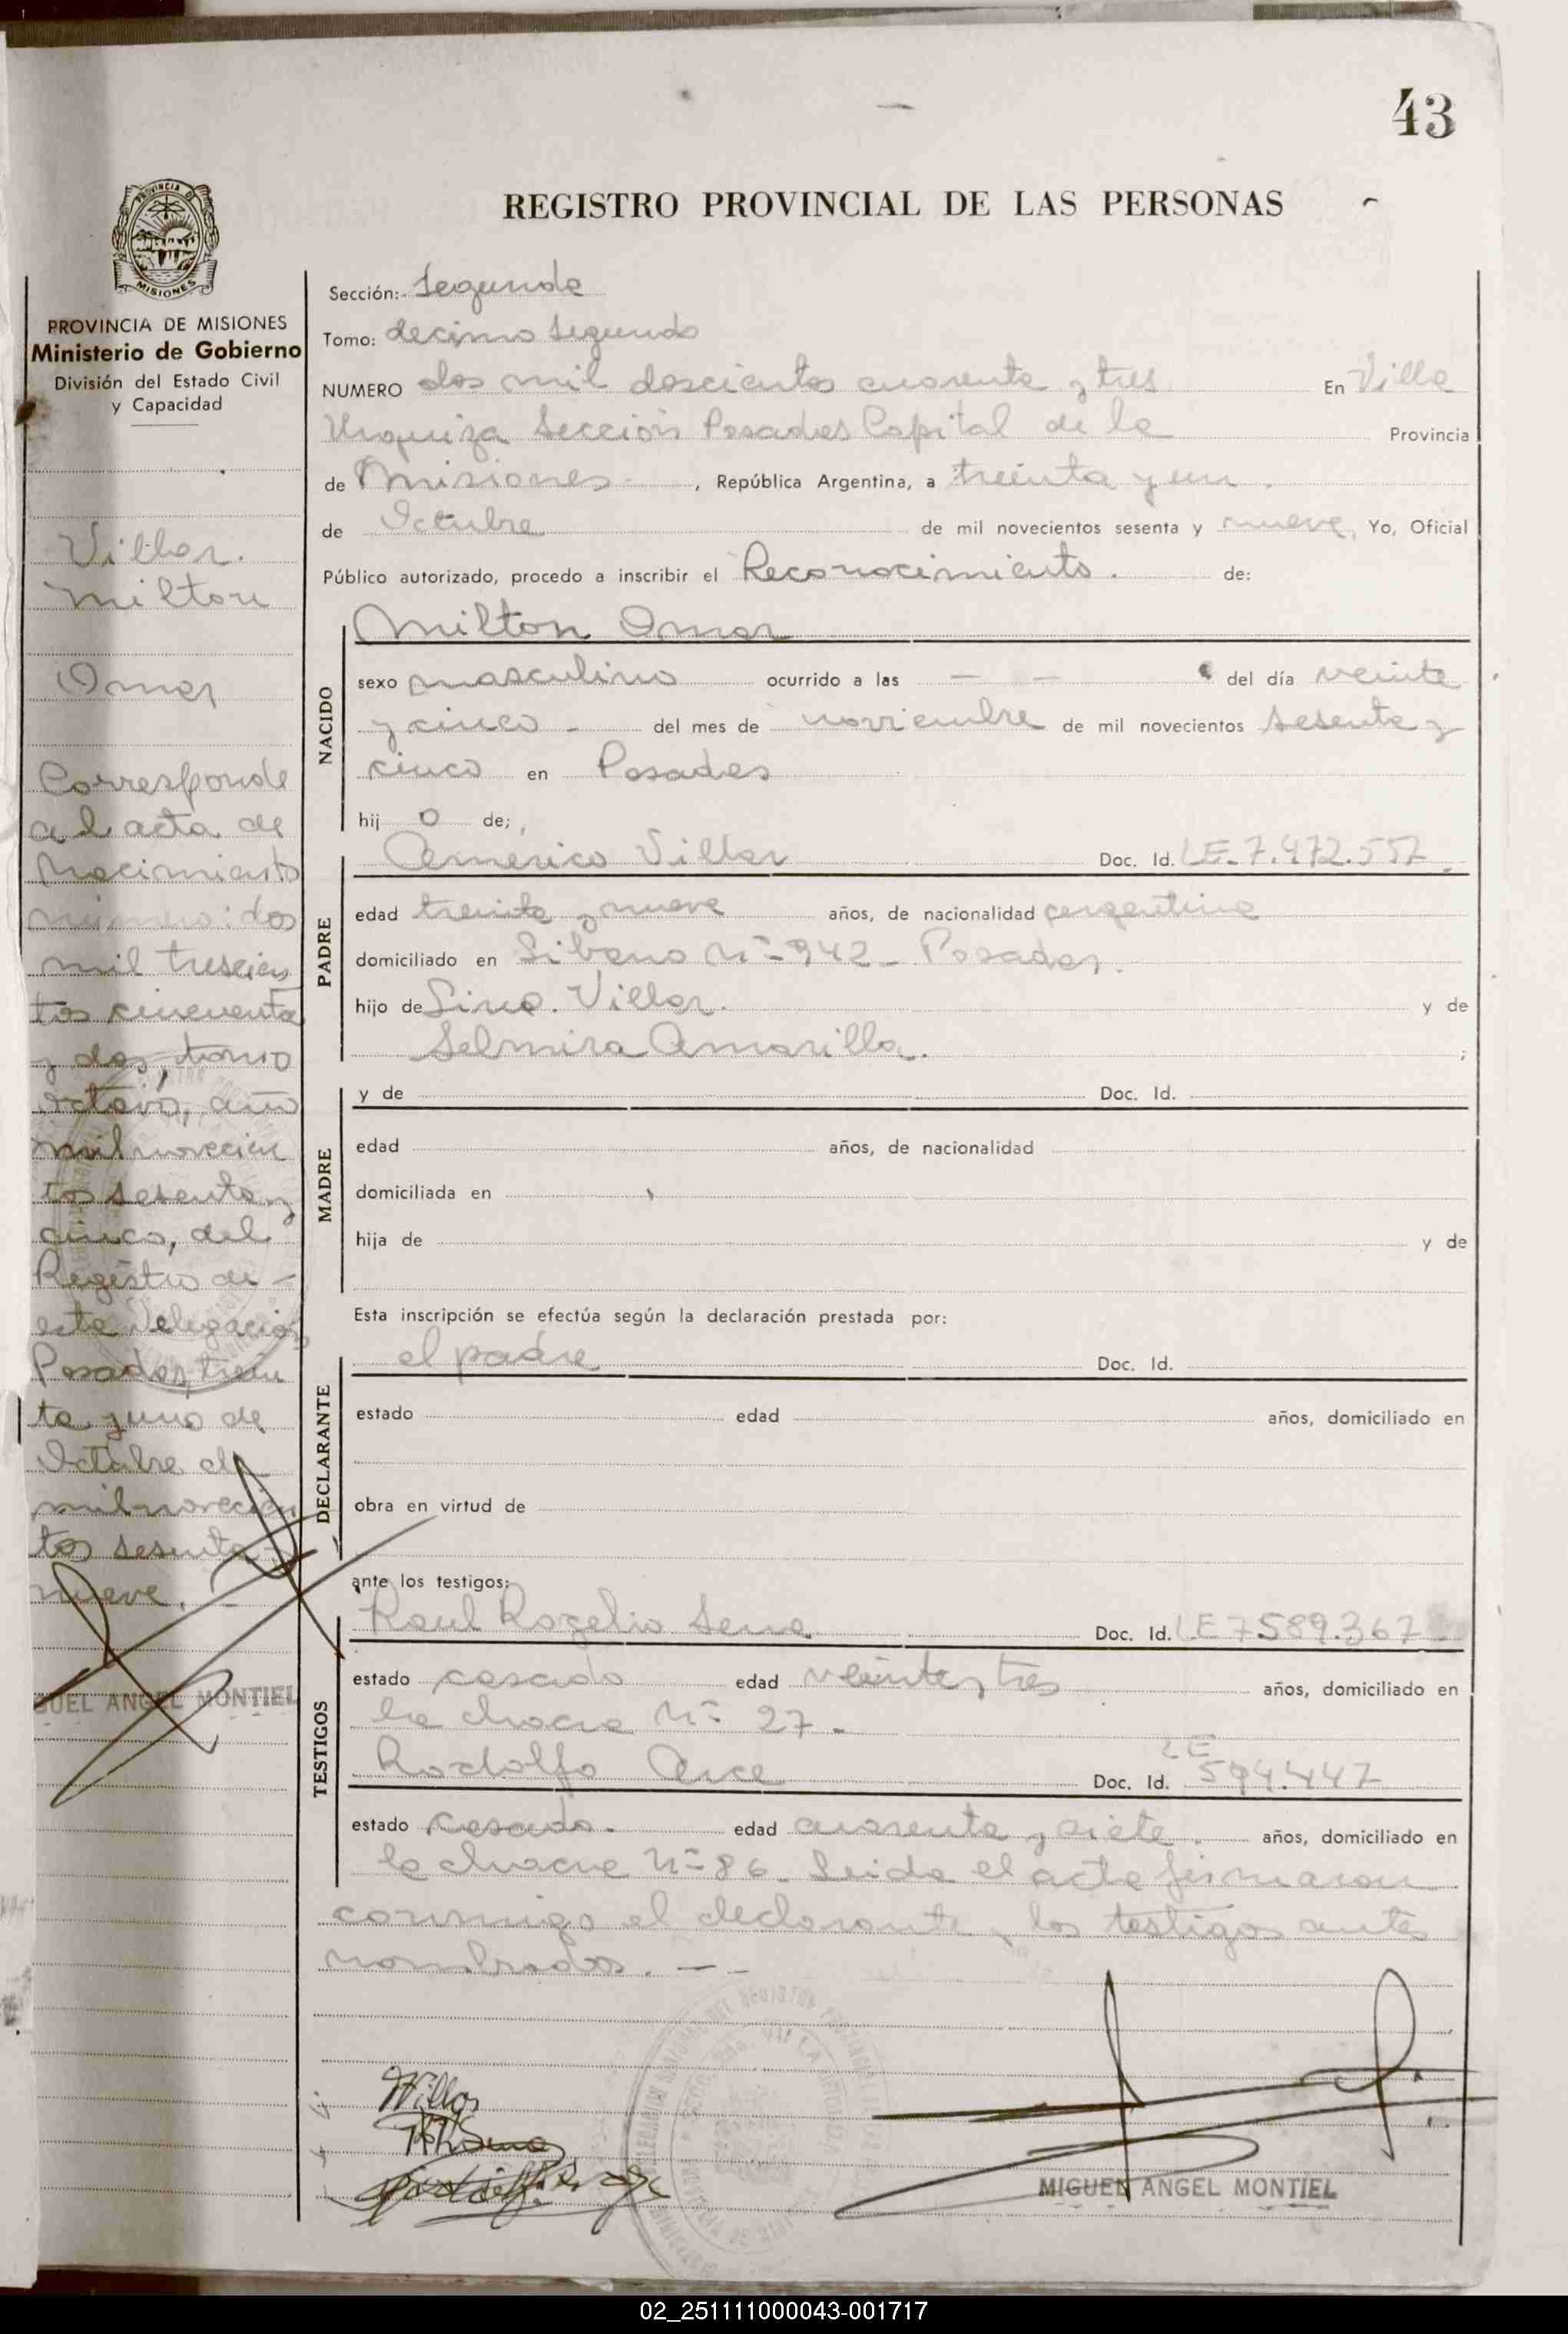 43
REGISTRO PROVINCIAL DE LAS PERSONAS
PROVINCIA DE
MISIONES
PROVINCIA DE MISIONES
Ministerio de Gobierno
División del Estado Civil
y Capacidad
Villar.
Milton
Omar
Corresponde
al acta de
Nacimiento
número: dos
mil trescien
tos cincuenta
y dos, tomo
octavo, año
mil novecien
tos sesenta y
cinco, del
Registro de -
esta Delegación
Posadas, trein
ta y uno de
Octubre de
mil novecien
tos sesenta y
nueve. -
GUEL ANGEL MONTIEL
Sección:- Segunda
Tomo: decimo segundo
NUMERO dos mil doscientos cuarenta y tres En Villa
Urquiza Sección Posadas Capital de la Provincia
de Misiones , República Argentina, a treinta y un
de Octubre de mil novecientos sesenta y nueve, Yo, Oficial
Público autorizado, procedo a inscribir el Reconocimiento. de:
NACIDO
Milton Omar
sexo masculino ocurrido a las — — del día veinte
y cinco - del mes de noviembre de mil novecientos sesenta y
cinco en Posadas
hij o de;
PADRE
Americo Villar Doc. Id. LE. 7.472.557
edad treinta y nueve años, de nacionalidad argentina
domiciliado en Libano Nº 942 - Posadas.
hijo de Lino Villar. y de
Selmira Amarilla. ;
MADRE
y de Doc. Id.
edad años, de nacionalidad
domiciliada en
hija de y de
Esta inscripción se efectúa según la declaración prestada por:
DECLARANTE
el padre Doc. Id.
estado edad años, domiciliado en
obra en virtud de
ante los testigos:
TESTIGOS
Raul Rogelio Sena Doc. Id. LE 7.589.367
estado casado edad veinte y tres años, domiciliado en
la chacra Nº 27.
Rodolfo Arce Doc. Id. LE 594.447
estado casado. edad cuarenta y siete. años, domiciliado en
la chacra Nº 86. Leida el acta firmaron
conmigo el declarante y los testigos antes
nombrados. — -
Villar
MIGUEL ANGEL MONTIEL
02_251111000043-001717